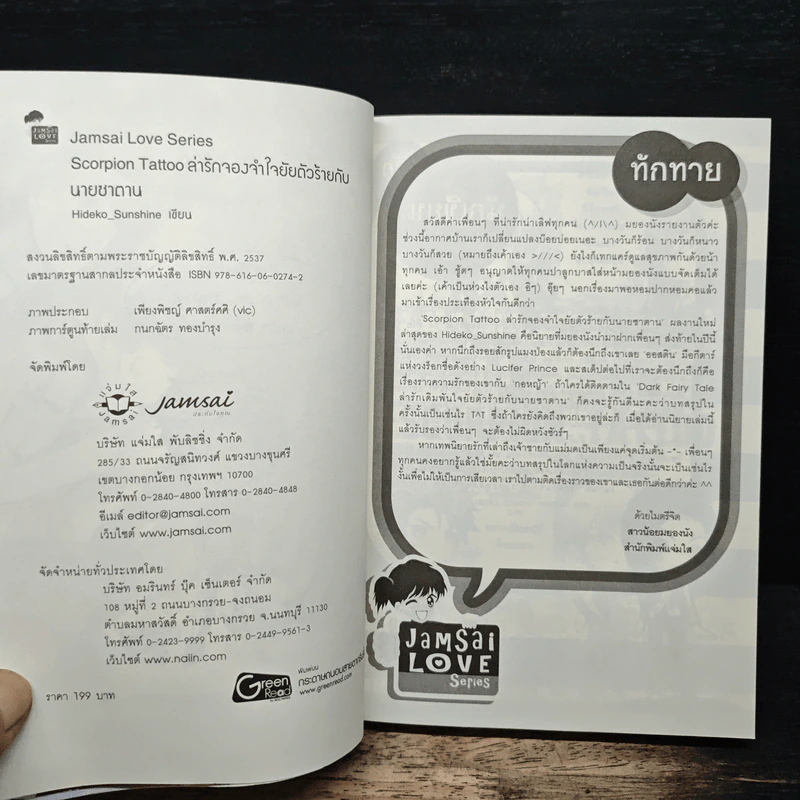 JAMSAI
LOVE
Series
Jamsai Love Series
Scorpion Tattoo ล่ารักจองจำใจยัยตัวร้ายกับ
นายซาตาน
Hideko_Sunshine เขียน
สงวนลิขสิทธิ์ตามพระราชบัญญัติลิขสิทธิ์ พ.ศ. 2537
เลขมาตรฐานสากลประจำหนังสือ ISBN 978-616-06-0274-2
ภาพประกอบ เพียงพิชญ์ ศาสตร์ศศิ (vic)
ภาพการ์ตูนท้ายเล่ม กนกฉัตร ทองบำรุง
จัดพิมพ์โดย
แจ่มใส
Jamsai
Jamsai
ประทับใจคุณ
บริษัท แจ่มใส พับลิชชิ่ง จำกัด
285/33 ถนนจรัญสนิทวงศ์ แขวงบางขุนศรี
เขตบางกอกน้อย กรุงเทพฯ 10700
โทรศัพท์ 0-2840-4800 โทรสาร 0-2840-4848
อีเมล์ editor@jamsai.com
เว็บไซต์ www.jamsai.com
จัดจำหน่ายทั่วประเทศโดย
บริษัท อมรินทร์ บุ๊ค เซ็นเตอร์ จำกัด
108 หมู่ที่ 2 ถนนบางกรวย-จงถนอม
ตำบลมหาสวัสดิ์ อำเภอบางกรวย จ.นนทบุรี 11130
โทรศัพท์ 0-2423-9999 โทรสาร 0-2449-9561-3
เว็บไซต์ www.naiin.com
ราคา 199 บาท
Green
Read
พิมพ์บน
กระดาษถนอมสายตากรีนรี้ด
www.greenread.com
ทักทาย
สวัสดีค่าเพื่อนๆ ที่น่ารักน่าเลิฟทุกคน (^/I\^) มยองนังรายงานตัวค่ะ
ช่วงนี้อากาศบ้านเราก็เปลี่ยนแปลงบ๊อยบ่อยเนอะ บางวันก็ร้อน บางวันก็หนาว
บางวันก็สวย (หมายถึงเค้าเอง >///<) ยังไงก็เทกแคร์ดูแลสุขภาพกันด้วยน้า
ทุกคน เอ้า ชู้ตๆ อนุญาตให้ทุกคนปาลูกบาสใส่หน้ามยองนังแบบจัดเต็มได้
เลยค่ะ (เค้าเป็นห่วงไงตัวเอง อิๆ) อุ๊ยๆ นอกเรื่องมาพอหอมปากหอมคอแล้ว
มาเข้าเรื่องประเทืองหัวใจกันดีกว่า
'Scorpion Tattoo ล่ารักจองจำใจยัยตัวร้ายกับนายซาตาน' ผลงานใหม่
ล่าสุดของ Hideko_Sunshine คือนิยายที่มยองนังนำมาฝากเพื่อนๆ ส่งท้ายในปีนี้
นั่นเองค่า หากนึกถึงรอยสักรูปแมงป่องแล้วก็ต้องนึกถึงเขาเลย 'ออสติน' มือกีตาร์
แห่งวงร็อกชื่อดังอย่าง Lucifer Prince และสเต็ปต่อไปที่เราจะต้องนึกถึงก็คือ
เรื่องราวความรักของเขากับ 'กอหญ้า' ถ้าใครได้ติดตามใน 'Dark Fairy Tale
ล่ารักเดิมพันใจยัยตัวร้ายกับนายซาตาน' ก็คงจะรู้กันดีนะคะว่าบทสรุปใน
ครั้งนั้นเป็นเช่นไร T^T ซึ่งถ้าใครยังคิดถึงพวกเขาอยู่ล่ะก็ เมื่อได้อ่านนิยายเล่มนี้
แล้วรับรองว่าเพื่อนๆ จะต้องไม่ผิดหวังชัวร์ๆ
หากเทพนิยายรักที่เล่าถึงเจ้าชายกับแม่มดเป็นเพียงแค่จุดเริ่มต้น -*- เพื่อนๆ
ทุกคนคงอยากรู้แล้วใช่มั้ยคะว่าบทสรุปในโลกแห่งความเป็นจริงนั้นจะเป็นเช่นไร
งั้นเพื่อไม่ให้เป็นการเสียเวลา เราไปตามติดเรื่องราวของเขาและเธอกันต่อดีกว่าค่ะ ^^
ด้วยไมตรีจิต
สาวน้อยมยองนัง
สำนักพิมพ์แจ่มใส
JAMSAI
LOVE
Series